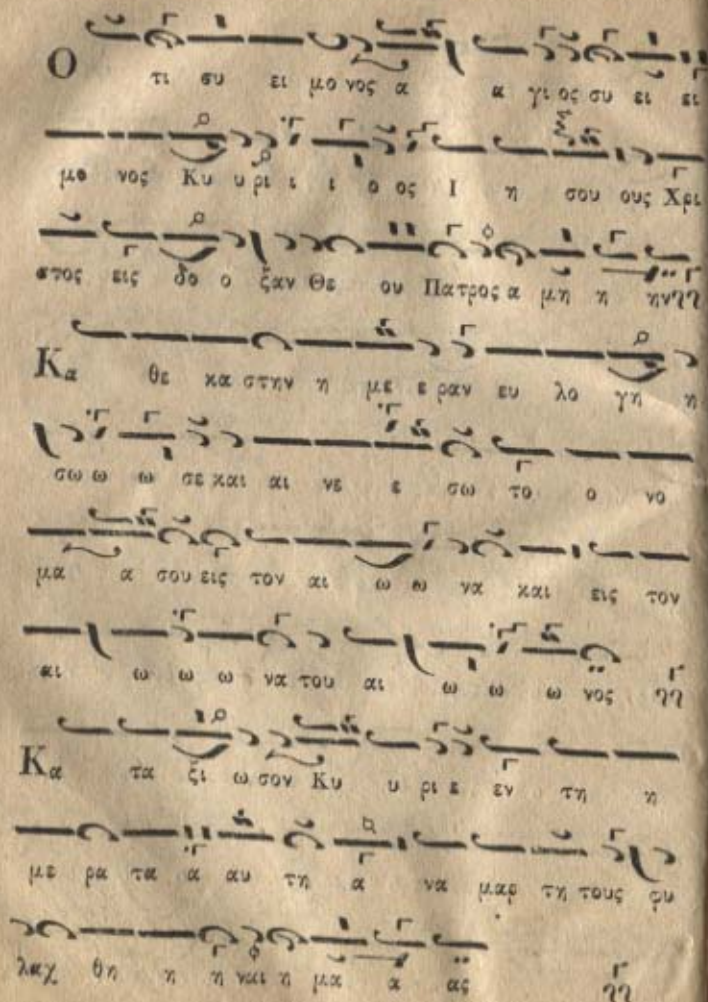 Ο τι συ ει μο νος α α γι ος συ ει ει
μο νος Κυ υ ρι ι ι ο ος Ι η σου ους Χρι
στος εις δο ο ξαν Θε ου Πατρος α μη η ην
Κα θε κα στην η με ε ραν ευ λο γη η
σω ω ω σε και αι νε ε σω το ο νο
μα α σου εις τον αι ω ω να και εις τον
αι ω ω ω να του αι ω ω ω νος
Κα τα ξι ω σον Κυ υ ρι ε εν τη η
με ρα τα α αυ τη α να μαρ τη τους φυ
λαχ θη η η ναι η μα α ας